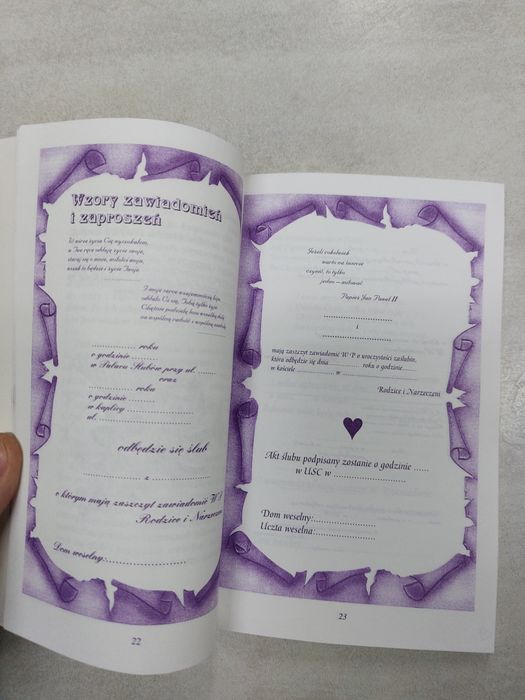 Wzory zawiadomień
i zaproszeń
W mroku życia Cię wyczekałem,
w Twe ręce oddaję życie swoje,
staraj się o moje, miłości moja,
wszak to będzie i życie Twoje
I moje serce wzajemnością bije,
oddało Ci się, Tobą tylko żyje
na wspólną radość i wspólną
................ roku
o godzinie ..........
w Pałacu Ślubów przy ul. .....
oraz
................ roku
o godzinie ................
w kaplicy ................
ul. ......................
odbędzie się ślub
................ z ................
o którym mają zaszczyt zawiadomić W P
Rodzice i Narzeczeni
Dom weselny:......................
22
Jeżeli cokolwiek
warto na świecie
czynić, to tylko
jedno – miłować
Papież Jan Paweł II
......................
i
......................
mają zaszczyt zawiadomić W P o uroczystości zaślubin,
która odbędzie się dnia .......... roku o godzinie......
w kościele ............. w ...........................
Rodzice i Narzeczeni
Akt ślubu podpisany zostanie o godzinie .....
w USC w ......................
Dom weselny:...................
Uczta weselna:..................
23